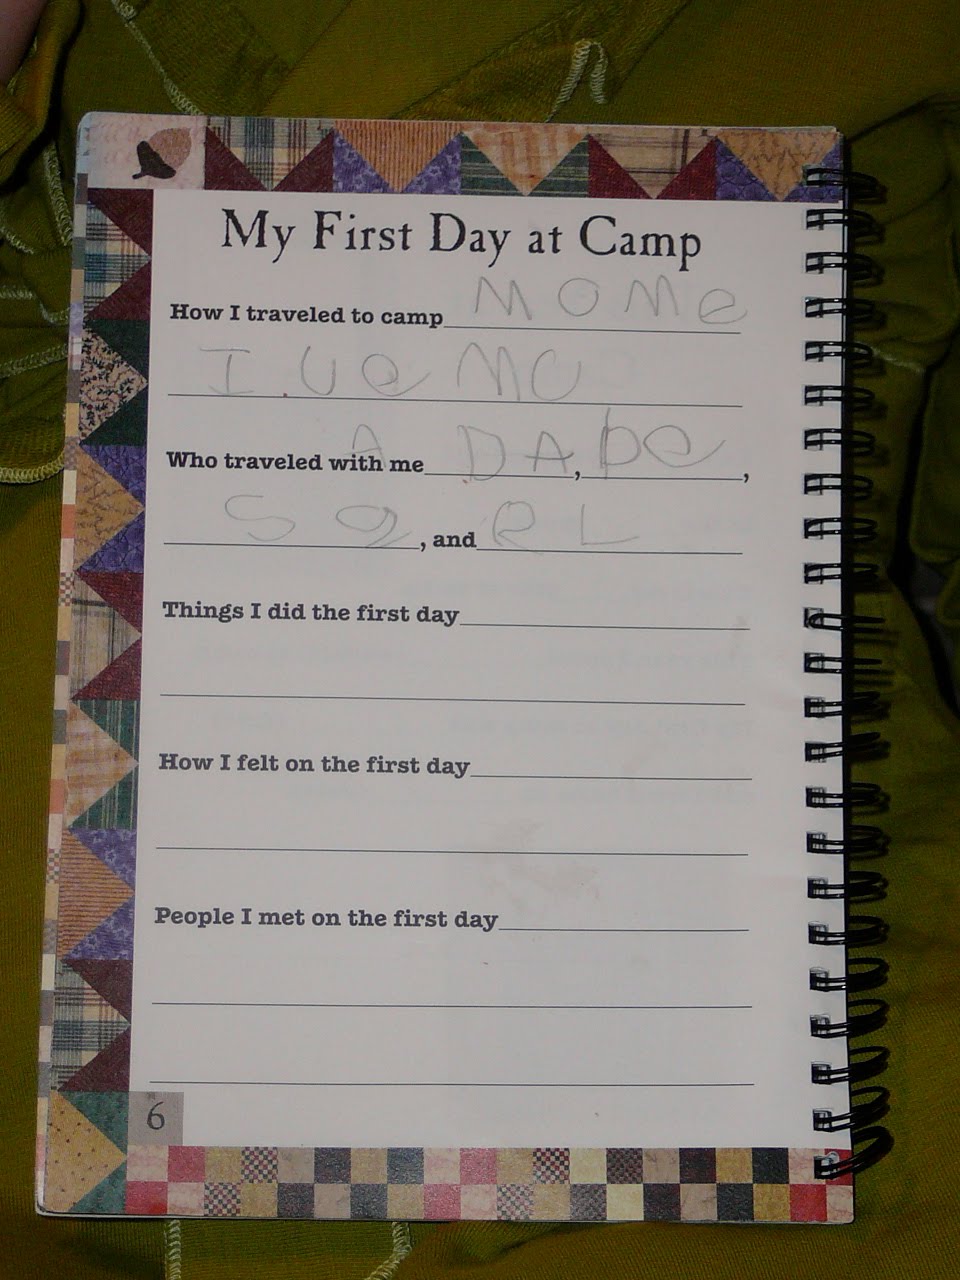 My First Day at Camp
How I traveled to camp MOMe
I ue MU
Who traveled with me A DA, De,
S, and RL
Things I did the first day
How I felt on the first day
People I met on the first day
6